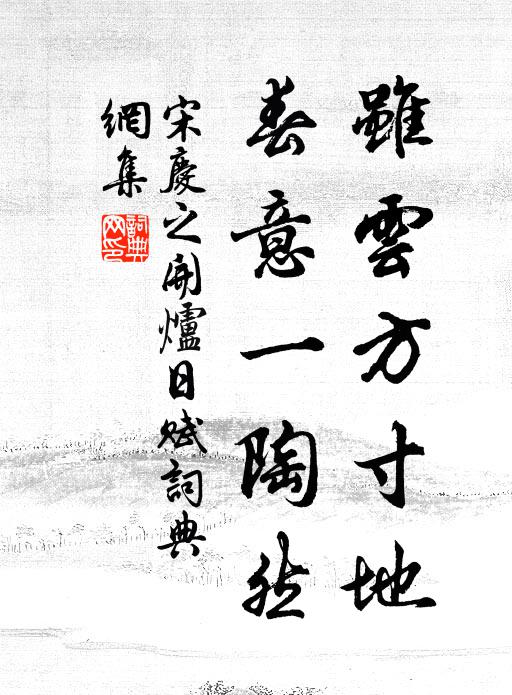 雖雲方寸地
春意一陶然
宋慶之開爐日賦詞典
網集
詞典
网印